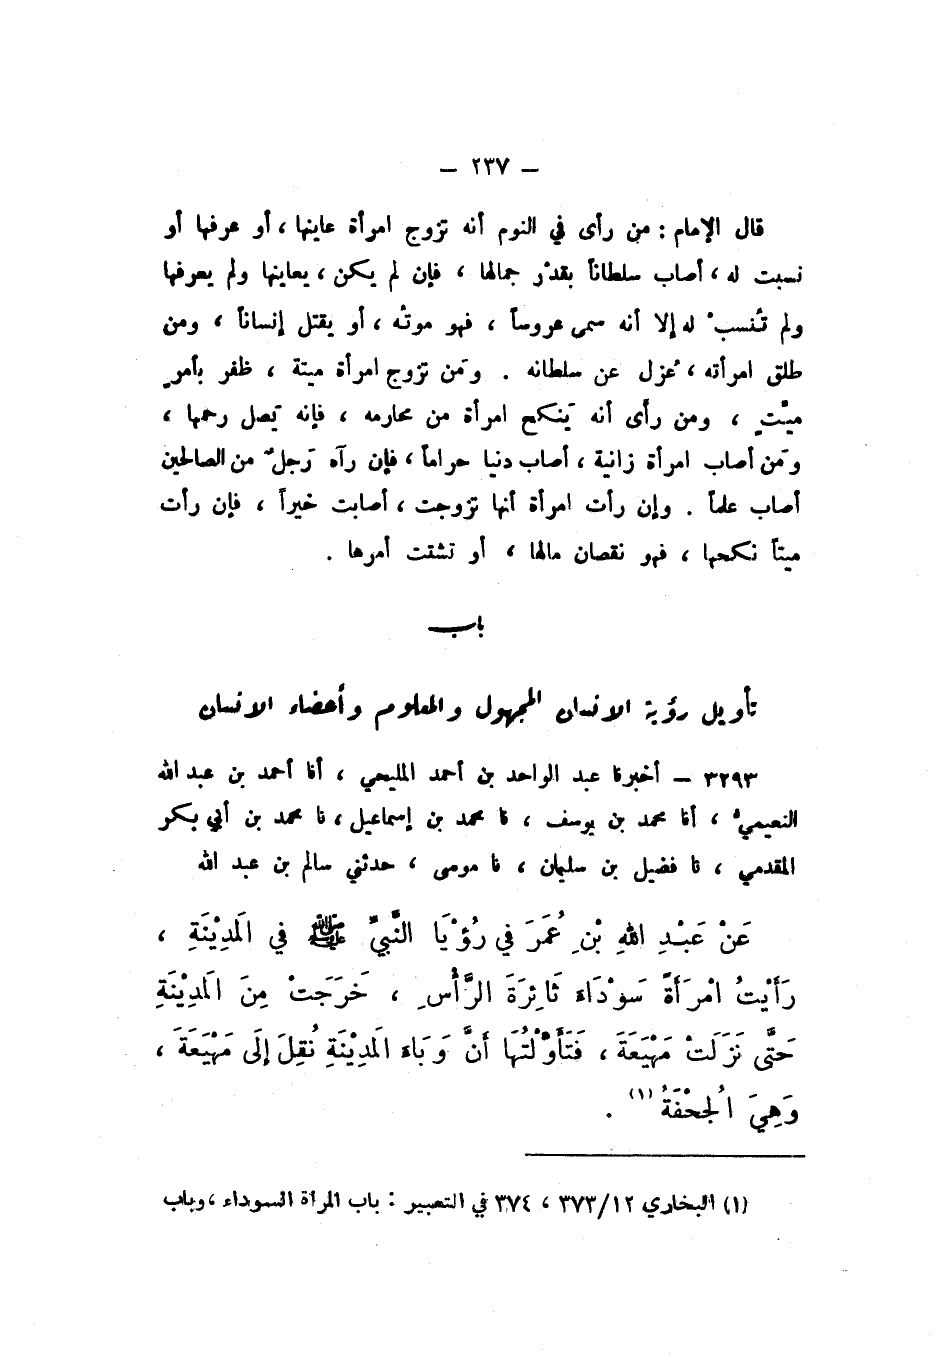 — ٢٣٧ —
قال الإمام : من رأى في النوم أنه تزوج امرأة عاينها ، أو عرفها أو
نسبت له ، أصاب سلطاناً بقدْر جمالها ، فإن لم يكن ، يعاينها ولم يعرفها
ولم تُنسبْ له إلا أنه سمى عروساً ، فهو موتُه ، أو يقتل إنساناً ، ومن
طلق امرأته ، عُزل عن سلطانه . ومَن تزوج امرأة ميتة ، ظفر بأمرٍ
ميْتٍ ، ومن رأى أنه يَنكح امرأة من محارمه ، فإنه يَصل رحمها ،
ومَن أصاب امرأة زانية ، أصاب دنيا حراماً ، فإن رآه رَجلٌ من الصالحين
أصاب علماً . وإن رأت امرأة أنها تزوجت ، أصابت خيراً ، فإن رأت
ميتاً نكحها ، فهو نقصان مالها ، أو تشتت أمرها .
باب
تأويل رؤية الانسان المجهول والمعلوم وأعضاء الانسان
٣٢٩٣ — أخبرنا عبد الواحد بن أحمد المليحي ، أنا أحمد بن عبد الله
النعيميُ ، أنا محمد بن يوسف ، نا محمد بن إسماعيل ، نا محمد بن أبي بكر
المقدمي ، نا فضيل بن سليمان ، نا موسى ، حدثني سالم بن عبد الله
عَنْ عَبْدِ اللهِ بْنِ عُمَرَ فِي رُؤْيَا النَّبِيِّ ﷺ فِي المَدِيْنَةِ ،
رَأَيْتُ امْرَأَةً سَوْدَاءَ ثَائِرَةَ الرَّأْسِ ، خَرَجَتْ مِنَ المَدِيْنَةِ
حَتَّى نَزَلَتْ مَهْيَعَةَ ، فَتَأَوَّلْتُهَا أَنَّ وَبَاءَ المَدِيْنَةِ نُقِلَ إِلَى مَهْيَعَةَ ،
وَهِيَ الجُحْفَةُ (١) .
(١) البخاري ١٢/٣٧٣ ، ٣٧٤ في التعبير : باب المرأة السوداء ، وباب